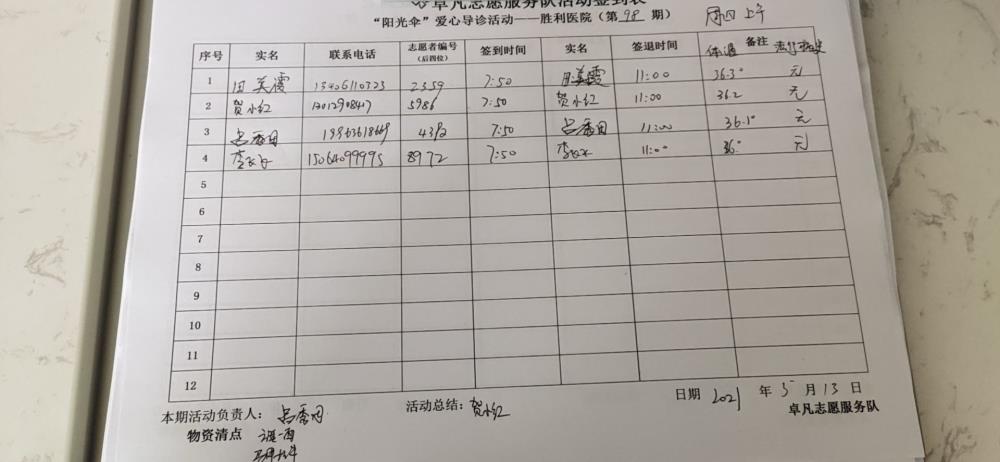 卓凡志愿服务队活动签到表
“阳光伞”爱心导诊活动——胜利医院（第98期） 周四上午
序号 实名 联系电话 志愿者编号（后四位） 签到时间 实名 签退时间 体温 备注
1 田美霞 13406110323 2359 7:50 田美霞 11:00 36.3° 无
2 贺小红 5986 7:50 贺小红 11:00 36.2 无
3 吕秀田 7:50 吕秀田 11:00 36.1° 无
4 15064099995 8972 7:50 11:00 36° 无
5
6
7
8
9
10
11
12
日期 2021 年 5 月 13 日
本期活动负责人： 吕秀田 活动总结： 贺小红
卓凡志愿服务队
物资清点